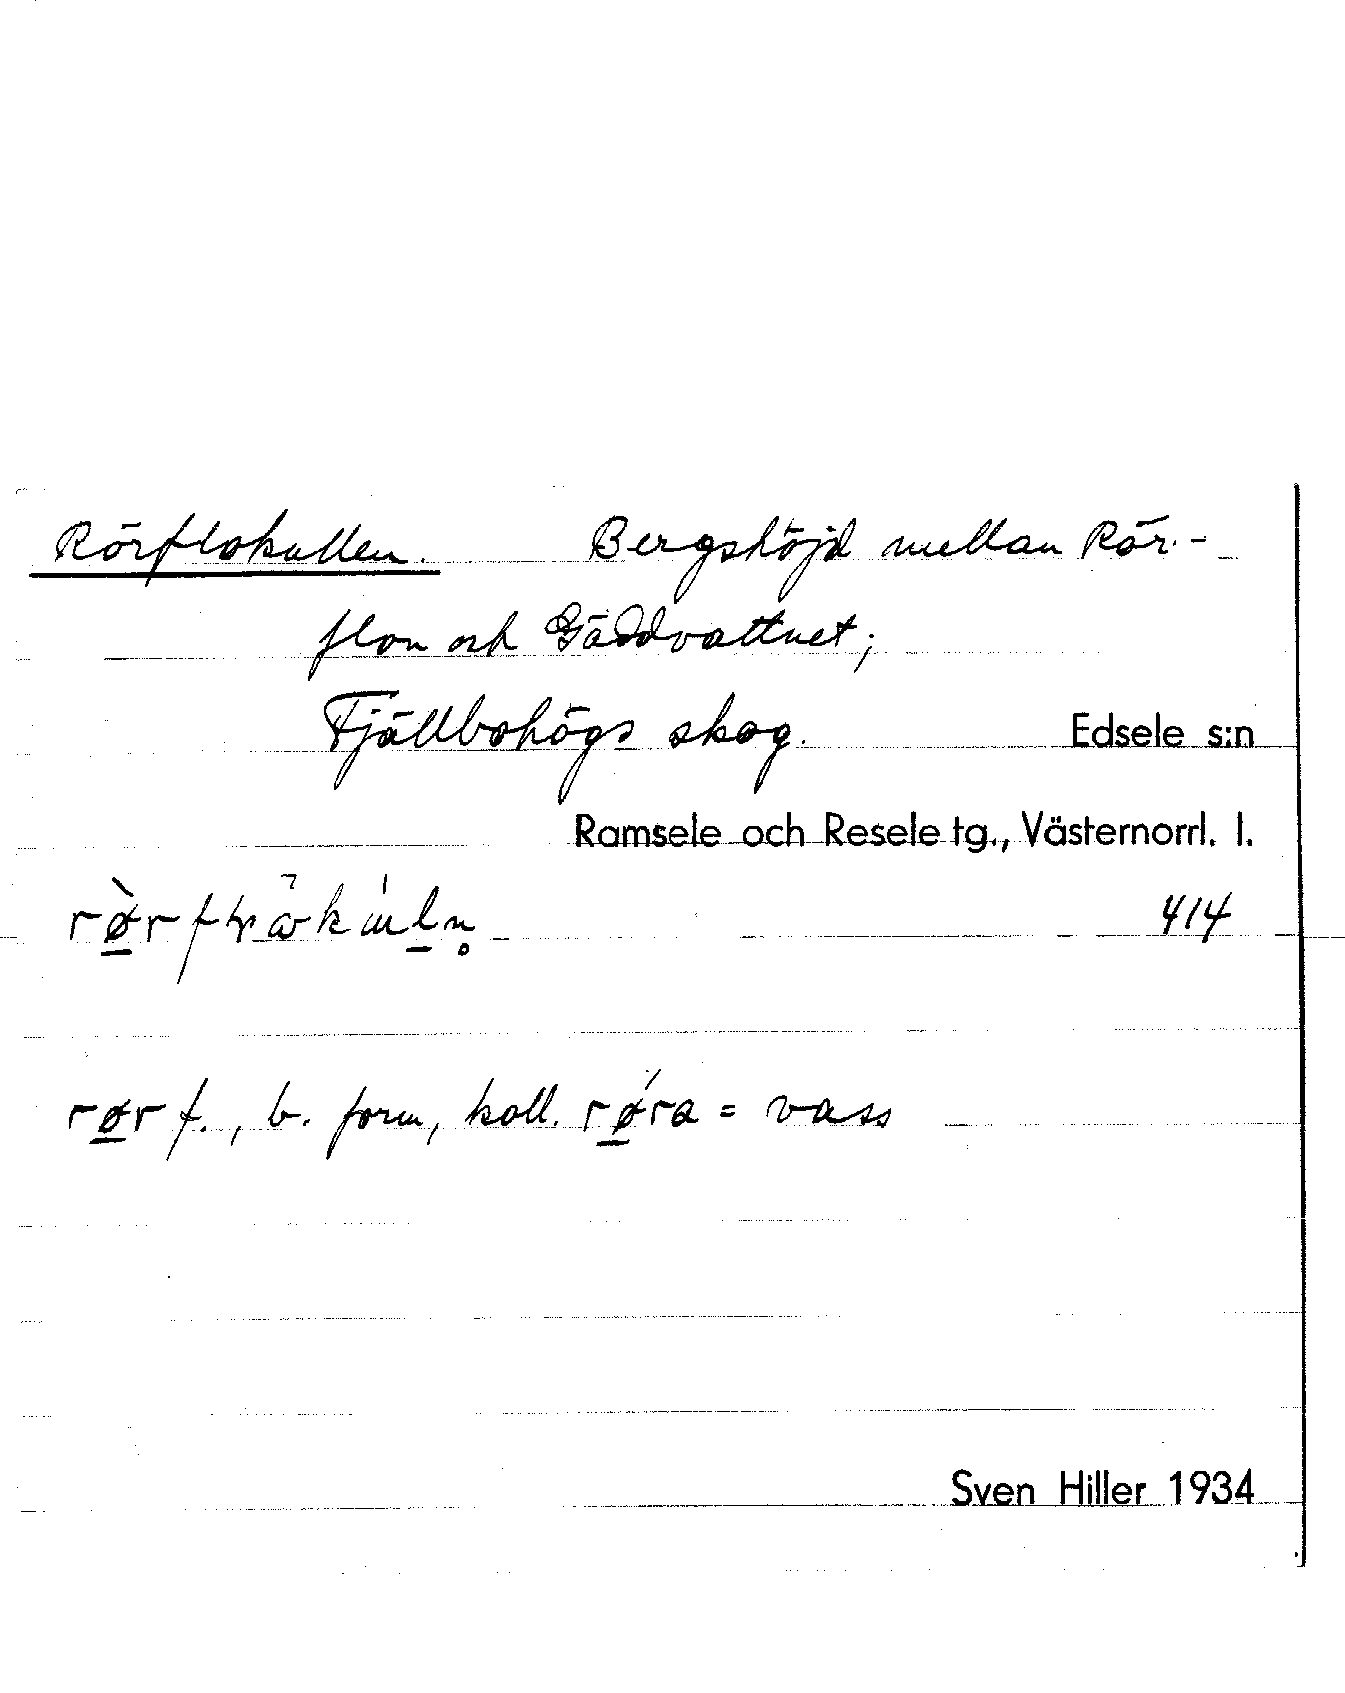 Rörflokullen. Bergshöjd mellan Rör-
flon och Gäddvattnet;
Fjällbohögs skog. Edsele s:n
Ramsele och Resele tg., Västernorrl. l.
414
rør f., b. form, koll. rǿra = vass
Sven Hiller 1934